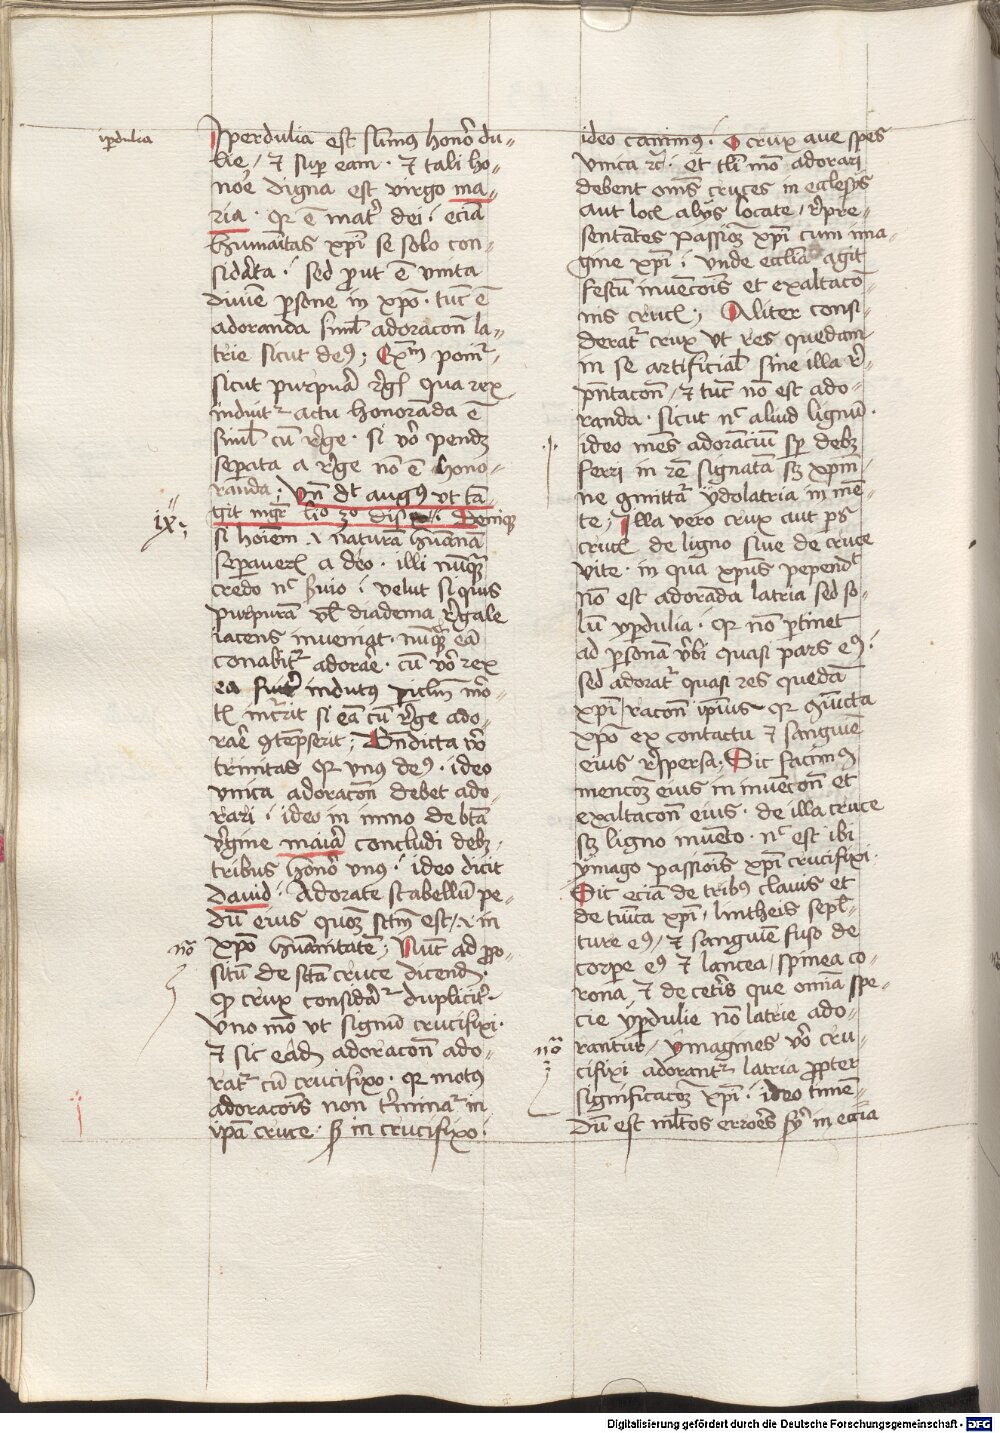 iperdulia
Iperdulia est sūmus honor du-
lie / et super eam · et tali ho-
nore digna est virgo ma-
ria · qr ē mat' dei · eciā
humaītas xpī se solo con-
sidāta · sed prout ē vnita
diuīe persone in xpō · tūc ē
adoranda simil' adoracōn la-
trie sicut de9 ; Exm poni'
sicut purpurā rēgl' qua rex
induit' actu honorāda ē
simil' cū rege · si vō pendz
separata a rege nō ē hono-
randa ; Vn dt aug9 vt tā-
git mgr lio 3o dis
ix;
Deniqz
si hoīem · naturā humanā
separauerl a deo · illi nūquā
credo nc seruio · velut si quis
purpurā vl' diadema regale
iacens inueniat · nūquā eā
conabit' adorare · cum vō rex
ea fuerit indutus
si eā cū rege ado-
rare 9tēpserit ; Bndicta vō
trinitas qr vnus de9 · ideo
vnica adoracōn debet ado-
rari · ideo in de btā
virgine maiā concludi debz
tribus honor vnus · ideo dicit
dauid · Adorate scabellū pe-
dū eius quoz sctm est / in
xpō humanitatē ; Nūc ad pro-
nō
situm de sctā cruce dicendū
qr crux considāt' duplicit'
Vno mō vt signū crucifixi ·
et sic eadē adoracōn ado-
rat' cū crucifixo · qr motus
adoracōis non t'mināt' in
ipā cruce · sz in crucifixo ·
ideo canim9 · O crux aue spes
vnica rc · et tli mō adorari
debent oms cruces in ecclesijs
aut locl alijs locate / repre-
sentātes passioz xpī cum ima-
gine xpī · vnde ecclīa agit
festū inuencōis et exaltacō-
nis crucl ; Aliter consi-
derat' crux vt res quedam
in se artificial' sine illa re-
pntacōn / et tūc nō est ado-
randa · sicut nc aliud lignū ·
ideo mēs adorāciū sp debz
ferri in rē signatā sz xpm
ne 9mittat' ydolatria in mē-
te ; Illa vero crux aut ps
crucl de ligno siue de cruce
vite · in qua xpus pependt
nō est adorāda latria sed so-
lū yperdulia · qr nō ptinet
ad personā vbi quasi pars e9 ·
sed adorat' quasi res quedā
xpī racōn ipius qr 9iūcta
xpō ex contactu et sanguīe
eius respersa ; Sic facim9
mencōz eius in inuencōn et
exaltacōn eius · de illa cruce
sz ligno inuēto · nc est ibi
ymago passiōis xpī crucifixi ·
Sic eciā de tribus clauis et
de tunica xpī / lintheis sepul-
ture e9 / et sanguīe fuso de
corpe e9 et lancea / spinea co-
rona et de ceteris que omnia spe-
cie yperdulie nō latrie ado-
nō
rantur / ymagines vō cru-
cifixi adorant' latria propter
significacōz xpī · ideo timē-
dū est mltos errores fieri in eccia